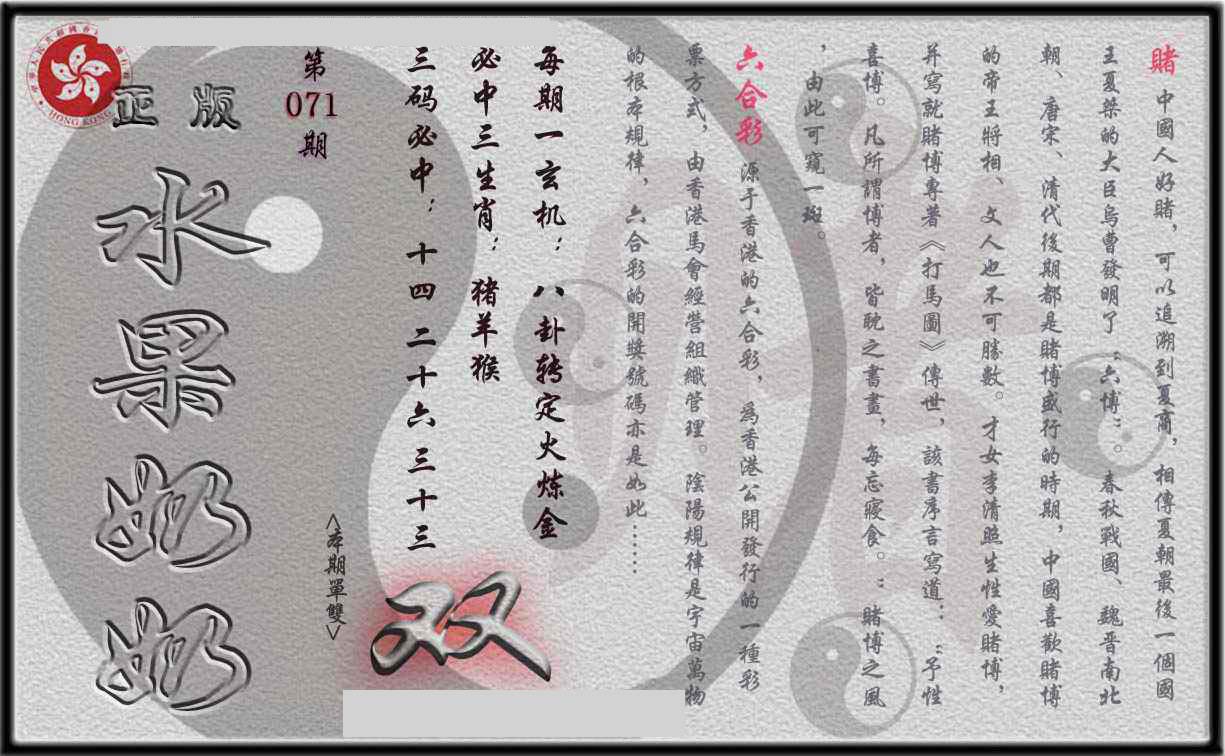 賭 中國人好賭，可以追溯到夏商，相傳夏朝最後一個國
王夏桀的大臣烏曹發明了“六博”。春秋戰國、魏晉南北
朝、唐宋、清代後期都是賭博盛行的時期，中國喜歡賭博
的帝王將相、文人也不可勝數。才女李清照生性愛賭博，
并寫就賭博專著《打馬圖》傳世，該書序言寫道：“予性
喜博。凡所謂博者，皆耽之書畫，每忘寢食。”賭博之風
，由此可窺一斑。
六合彩 源于香港的六合彩，為香港公開發行的一種彩
票方式，由香港馬會經營組織管理。陰陽規律是宇宙萬物
的根本規律，六合彩的開獎號碼亦是如此……
每期一玄机：八卦转定火炼金
必中三生肖：猪羊猴
三码必中：十四二十六三十三
双
<本期單雙>
第
071
期
正版
水果奶奶
HONG KONG